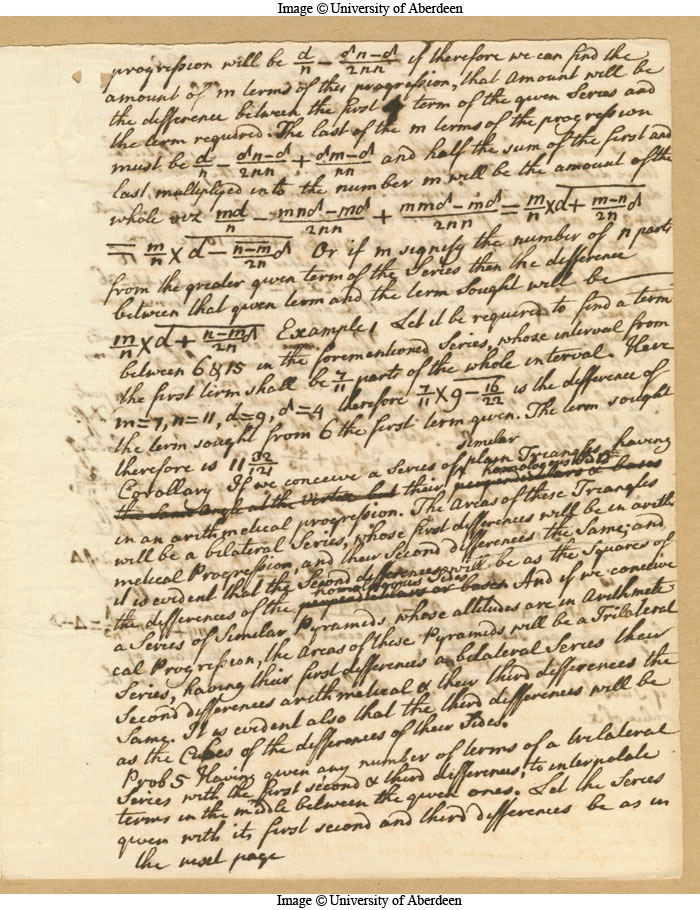 Image © University of Aberdeen
progression will be d/n − δn−δ/2nn if therefore we can find the
amount of m terms of this progression, that Amount will be
the difference between the first term of the given Series and
the term required. The last of the m terms of the progression
must be d/n − δn−δ/2nn + δm−δ/nn and half the sum of the first and
last multiplyed into the number m will be the amount of the
whole md/n − mnδ−mδ/2nn + mmδ−mδ/2nn = m/n × d + m−n/2n δ
= m/n × d − n−m/2n δ Or if m signify the number of n parts
from the greater given term of the Series then the difference
between that given term and the term sought will be
m/n × d + n−m/2n δ Example 1 Let it be required to find a term
between 6 & 15 in the forementioned Series, whose interval from
the first term shall be 7/11 parts of the whole interval. Here
m=7, n=11, d=9, δ=4 therefore 7/11 × 9 − 16/22 is the difference of
the term sought from 6 the first term given. The term sought
therefore is 11 32/121
similar
Corollary If we conceive a Series of plain Triangles having
homologous Sides
the same angle at the vertex but their perpendiculars & bases
in an arithmetical progression. The Areas of these Triangles
will be a bilateral Series, whose first differences will be in arith-
metical Progression, and their Second differences the Same; and
it is evident that the Second differences will be as the Squares of
homologous Sides
the differences of the perpendiculars or bases. And if we conceive
a Series of Similar Pyramids whose altitudes are in Arithmeti
cal Progression, the Areas of these Pyramids will be a Trilateral
Series, having their first differences a bilateral Series their
Second differences arithmetical & their third differences the
Same. It is evident also that the third differences will be
as the Cubes of the differences of their Sides.
Prob 5 Having given any number of terms of a trilateral
Series with the first second & third differences, to interpolate
terms in the middle between the given ones. Let the Series
given with its first second and third differences be as in
the next page
Image © University of Aberdeen